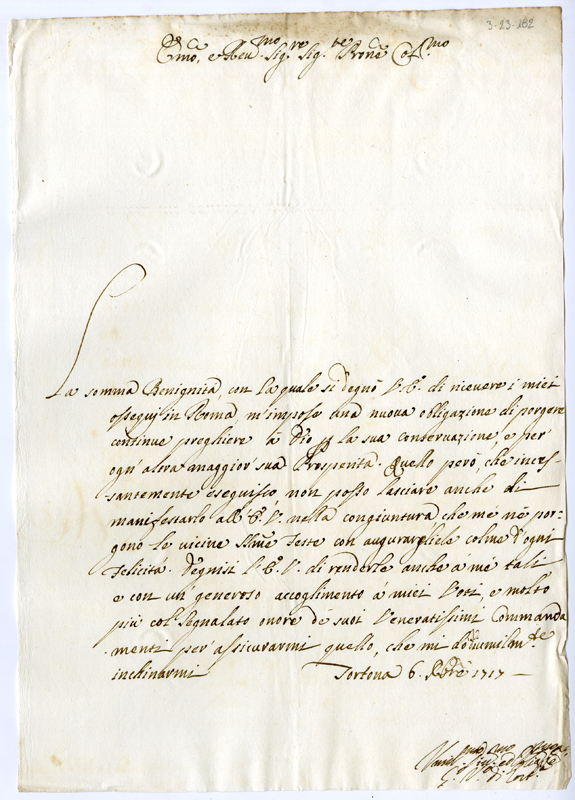 3-23-182
Em.mo, e Rev.mo Sig.re Sig.re P.rone Col.mo
La somma Benignità, con la quale si degnò l'E. V. di ricevere i miei
ossequij in Roma m'impose una nuova obligazione di porgere
continue preghiere à Dio p la sua conservazione, e per
ogn'altra maggior sua Prosperità. Quello però, che inces-
santemente eseguisco, non posso lasciare anche di
manifestarlo all'E. V. nella congiuntura che me nè por-
gono le vicine SS.me Feste con augurargliele colme d'ogni
felicità. Degnisi l'E. V. di renderle anche à me tali
e con un generoso accoglimento à miei Voti, e molto
più col segnalato onore de suoi Veneratissimi Commanda
menti per assicurarmi quello, che mi dò humilm.te
inchinarmi Tortona 6. Xbre 1717 -